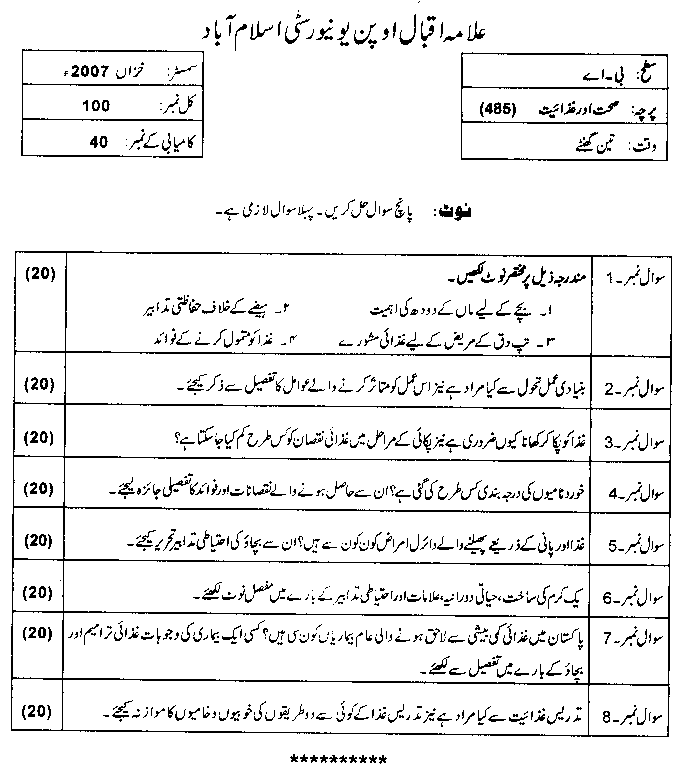 علامہ اقبال اوپن یونیورسٹی اسلام آباد
سطح: بی۔اے
سمسٹر: خزاں 2007ء
پرچہ: صحت اور غذائیت (485)
کل نمبر: 100
وقت: تین گھنٹے
کامیابی کے نمبر: 40
نوٹ: پانچ سوال حل کریں۔ پہلا سوال لازمی ہے۔
سوال نمبر۔1 مندرجہ ذیل پر مختصر نوٹ لکھیں۔ (20)
۱۔ بچے کے لیے ماں کے دودھ کی اہمیت ۲۔ ہیضے کے خلاف حفاظتی تدابیر
۳۔ تپ دق کے مریض کے لیے غذائی مشورے ۴۔ غذا کو متمول کرنے کے فوائد
سوال نمبر۔2 بنیادی عمل تحول سے کیا مراد ہے نیز اس عمل کو متاثر کرنے والے عوامل کا تفصیل سے ذکر کیجئے۔ (20)
سوال نمبر۔3 غذا کو پکا کر کھانا کیوں ضروری ہے نیز پکائی کے مراحل میں غذائی نقصان کو کس طرح کم کیا جا سکتا ہے؟ (20)
سوال نمبر۔4 خورد نامیوں کی درجہ بندی کس طرح کی گئی ہے؟ ان سے حاصل ہونے والے نقصانات اور فوائد کا تفصیلی جائزہ لیجئے۔ (20)
سوال نمبر۔5 غذا اور پانی کے ذریعے پھیلنے والے وائرل امراض کون کون سے ہیں؟ ان سے بچاؤ کی احتیاطی تدابیر تحریر کیجئے۔ (20)
سوال نمبر۔6 یک کرم کی ساخت، حیاتی دورانیہ، علامات اور احتیاطی تدابیر کے بارے میں مفصل نوٹ لکھئے۔ (20)
سوال نمبر۔7 پاکستان میں غذائی کمی بیشی سے لاحق ہونے والی عام بیماریاں کون سی ہیں؟ کسی ایک بیماری کی وجوہات غذائی ترامیم اور (20)
بچاؤ کے بارے میں تفصیل سے لکھئے۔
سوال نمبر۔8 تدریس غذائیت سے کیا مراد ہے نیز تدریس غذا کے کوئی سے دو طریقوں کی خوبیوں و خامیوں کا موازنہ کیجئے۔ (20)
**********